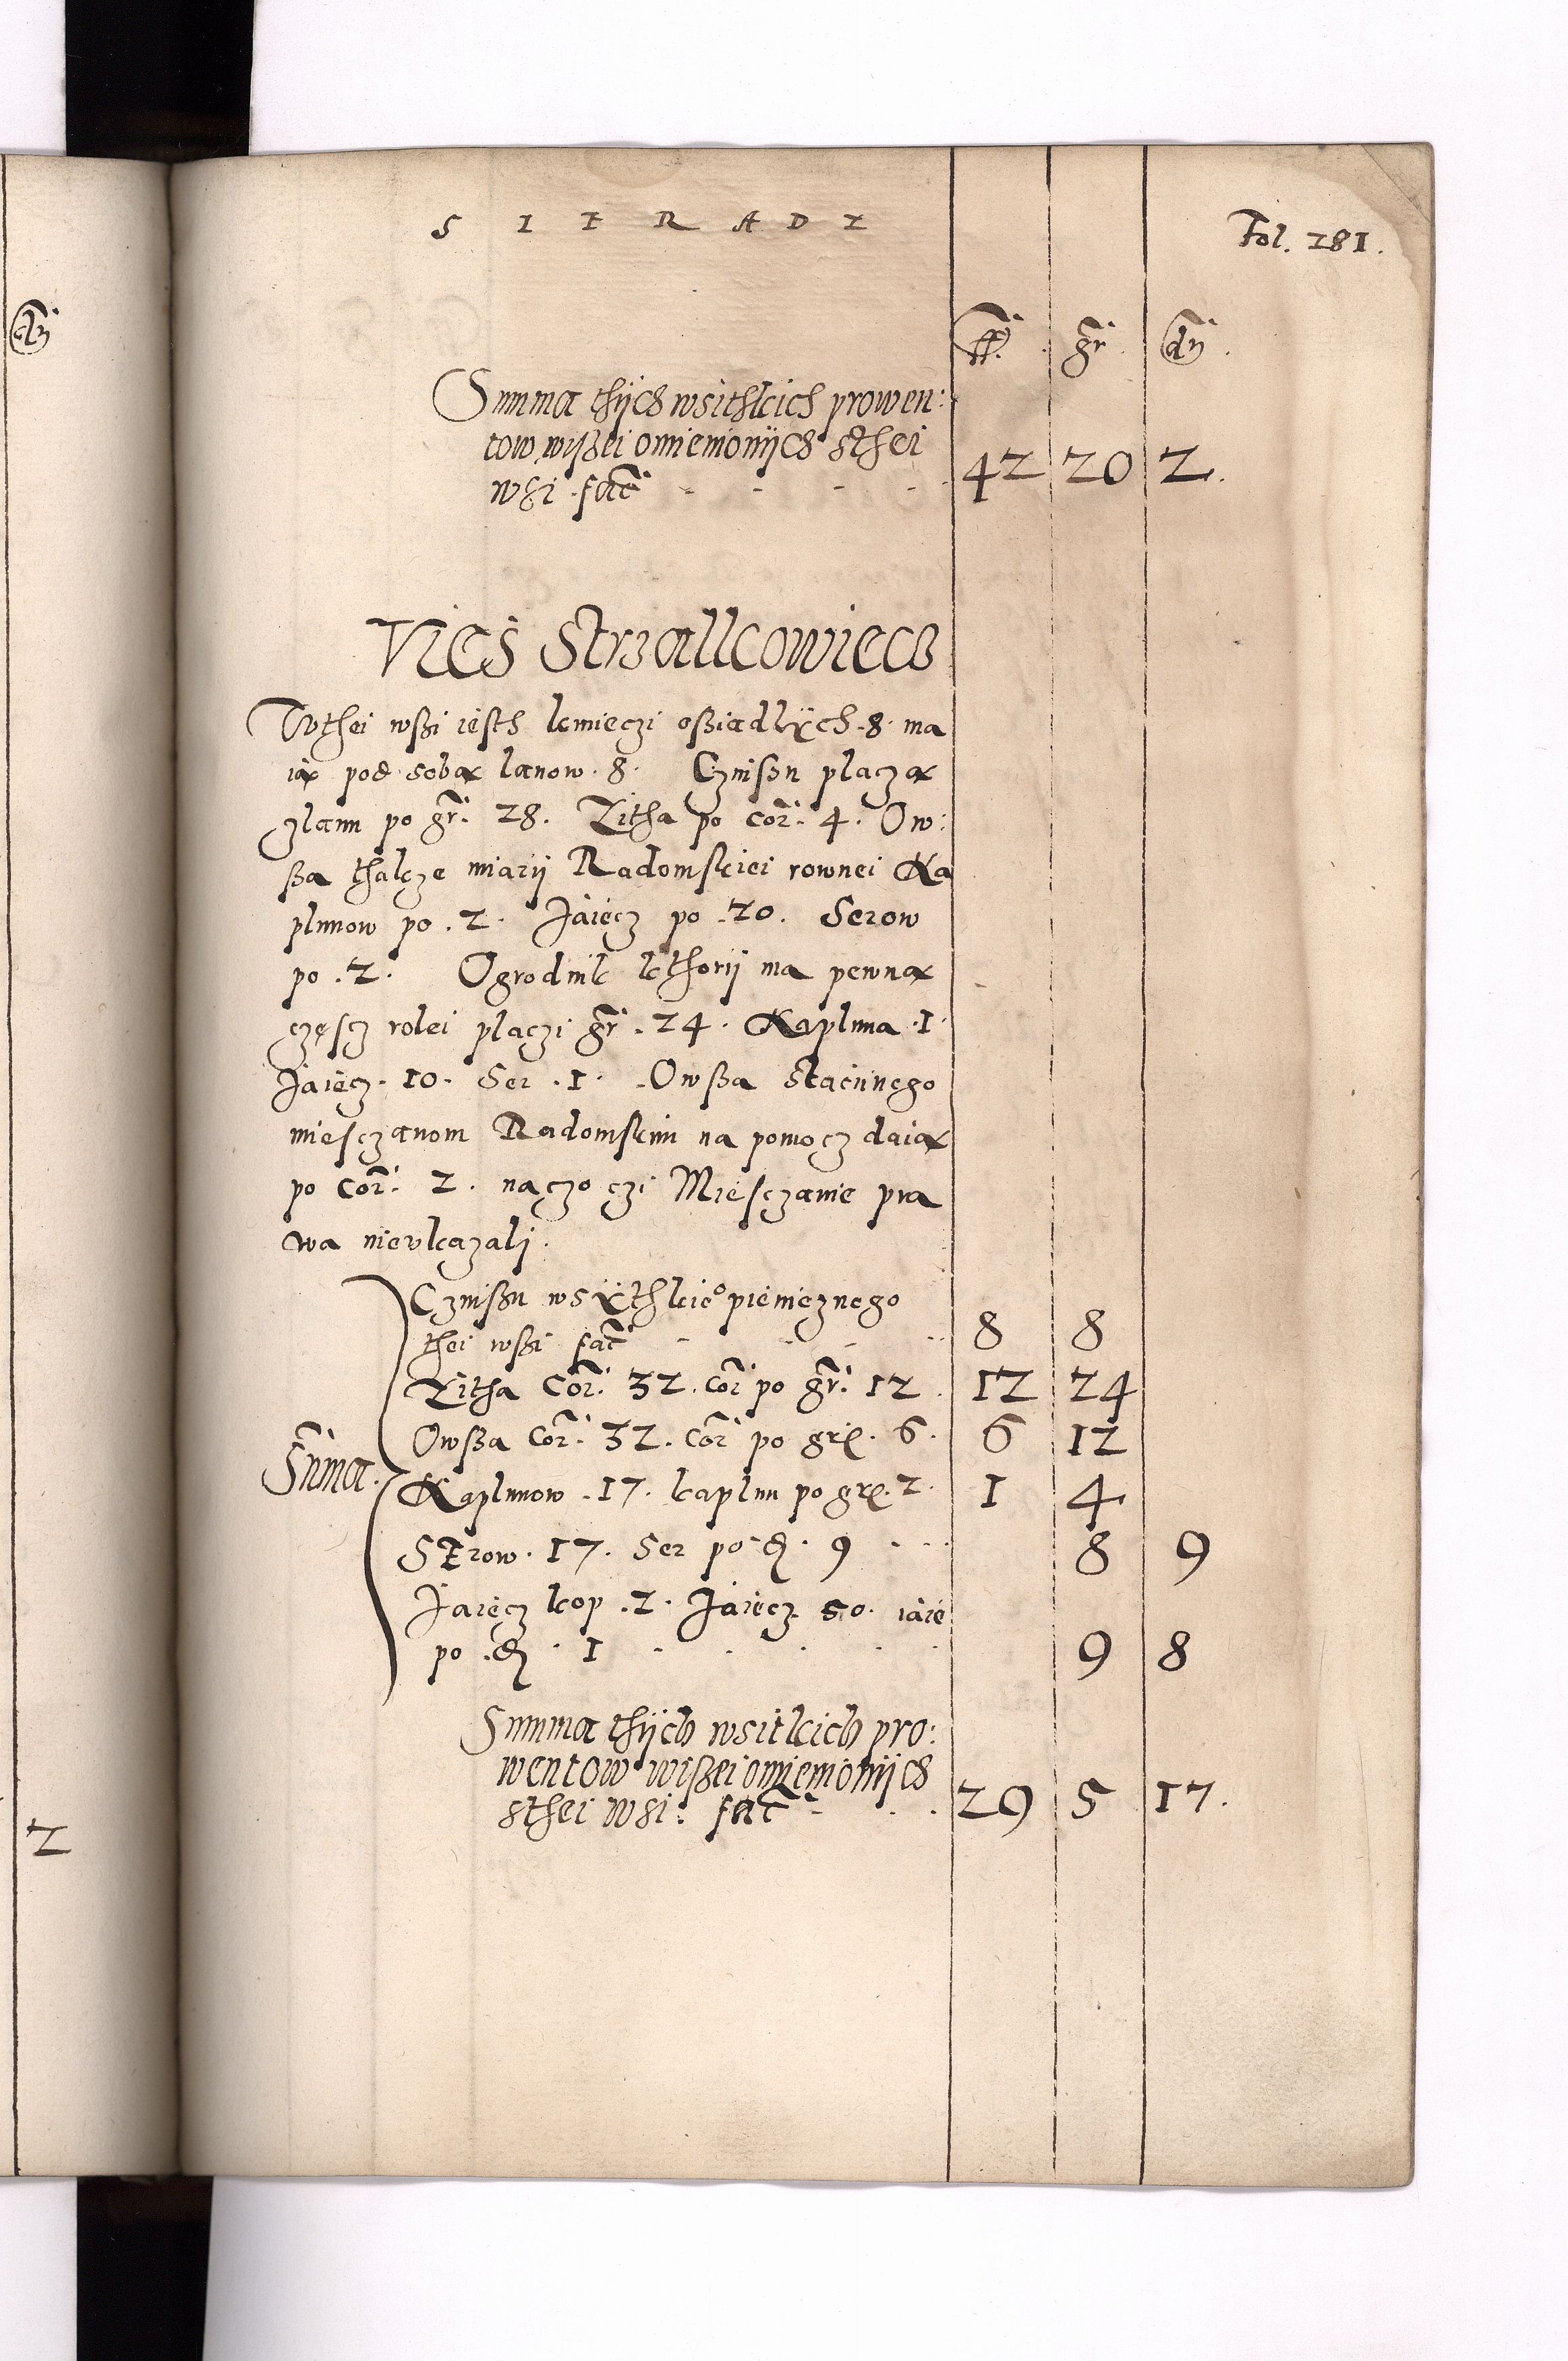 SIERADZ
Fol. 281.
ff. gr. dn.
dn
Summa thijch wsithkich prowen:
tow wißei omienionijch sthei
wsi facit 42 20 2.
Vieś Strzalkowiecz
Wthei wßi iesth kmieczi oßiadlÿch 8 ma
ią pod sobą lanow. 8. Czinßu placzą
zlanu po gr. 28. Zitha po cor. 4. Ow:
ßa thakze miarij Radomskiei rownei Ka
plunow po .2. Jaiecz po .20. Serow
po .2. Ogrodnik kthorij ma pewną
częscz rolei placzi gr. 24. Kapluna .1.
Jaiecz. 10. Ser .1. Owßa Staciinego
miesczanom Radomskim na pomocz daią
po cor. 2. naczo czi Miesczanie pra
wa nievkazali.
Czinßu wsÿthkieo pienieznego
thei wßi facit 8 8
Zitha Cor. 32. cor po gr. 12. 12 24
Owßa Cor. 32. Cor po gr. 6. 6 12
Suma.
Kaplunow .17. kaplun po gr. 2. 1 4
SErow. 17. Ser po d. 9 8 9
Jaiecz kop .2. Jaiecz 50. iaie
po .d. 1 9 8
Summa thijch wsitkich pro:
wentow wißei omienionijch
sthei wsi. facit 29 5 17.
2